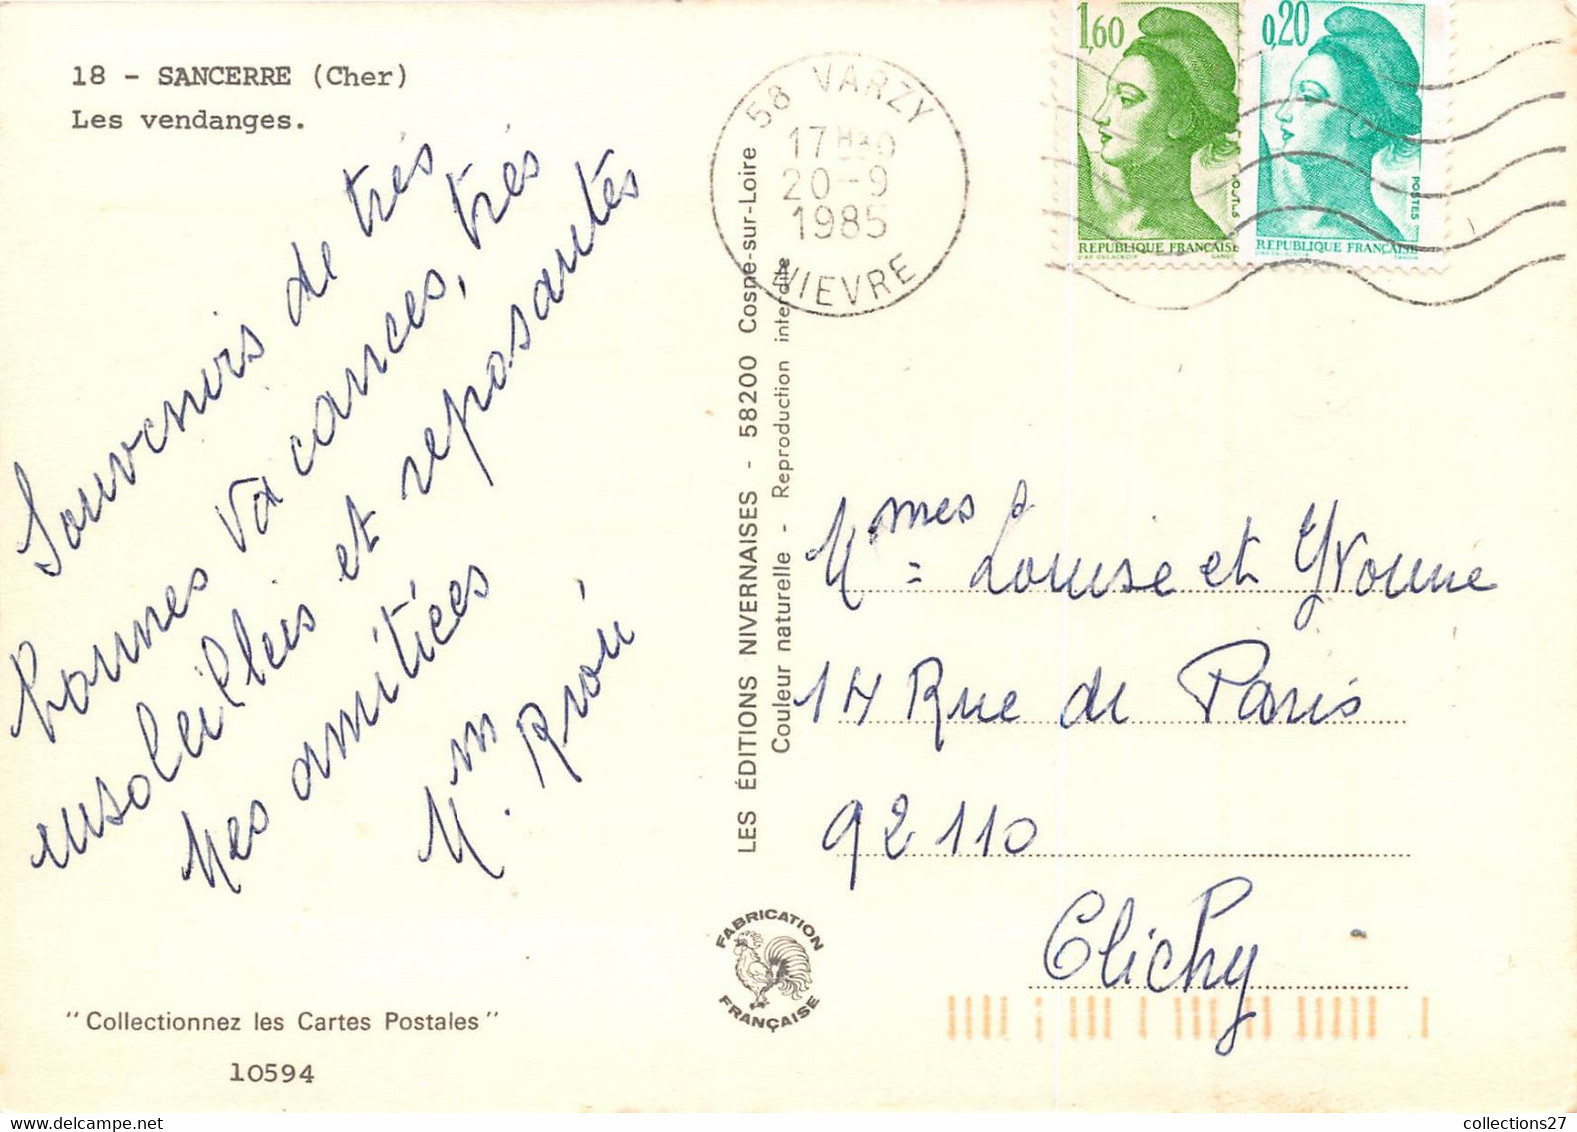 18 - SANCERRE (Cher)
Les vendanges.
Souvenirs de très
bonnes vacances, très
ensoleillés et reposantes
Mes amitiées
Mm.
"Collectionnez les Cartes Postales"
10594
LES ÉDITIONS NIVERNAISES - 58200 Cosne-sur-Loire
Couleur naturelle - Reproduction interdite
FABRICATION
FRANÇAISE
58 VARZY
17H30
20-9
1985
NIEVRE
1,60
POSTES
REPUBLIQUE FRANÇAISE
D'AP. DELACROIX GANDON
0,20
POSTES
REPUBLIQUE FRANÇAISE
D'AP. DELACROIX GANDON
Mmes Louise et Yvonne
14 Rue de Paris
92110
Clichy
collections27